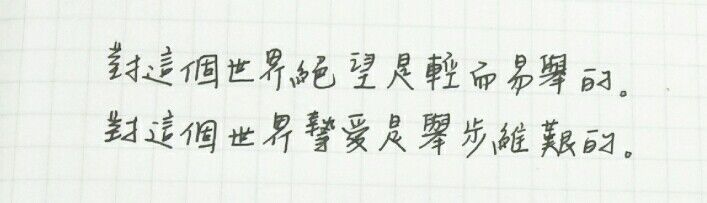 對這個世界絕望是輕而易舉的。
對這個世界摯愛是舉步維艱的。